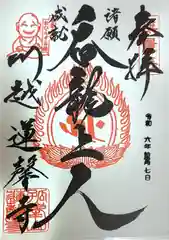 奉拝
令和 六年 七日
諸願
成就
呑龍上人
川越 蓮馨寺